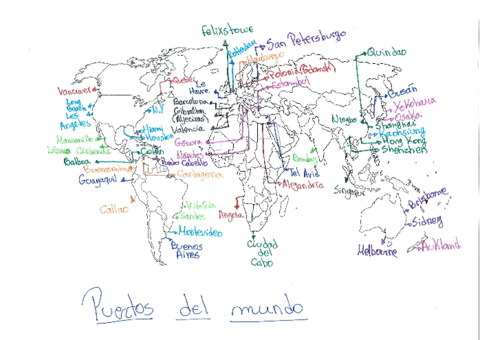 Felixstowe
San Petersburgo
Rotterdam
Hamburgo
Quindao
Vancouver
Quebec
Le
Havre
Polonia (Gdansk)
Estambul
Long
Beach
Los
Angeles
N.Y
Barcelona
Gibraltar
Algeciras
Valencia
Busan
Yokohama
Osaka
Ningbo
Shanghai
Kaohsiung
Hong Kong
Shenzhen
Manzanillo
Lázaro Cárdenas
Miami
Houston
Génova
Nápoles
Balboa
Colón
Puerto Cabello
Bombay
Tel Aviv
Buenaventura
Cartagena
Guayaquil
Alejandría
Singapur
Callao
Vitória
Santos
Angola
Brisbourne
Sidney
Montevideo
Buenos
Aires
Ciudad
del
Cabo
Melbourne
Auckland
Puertos del mundo